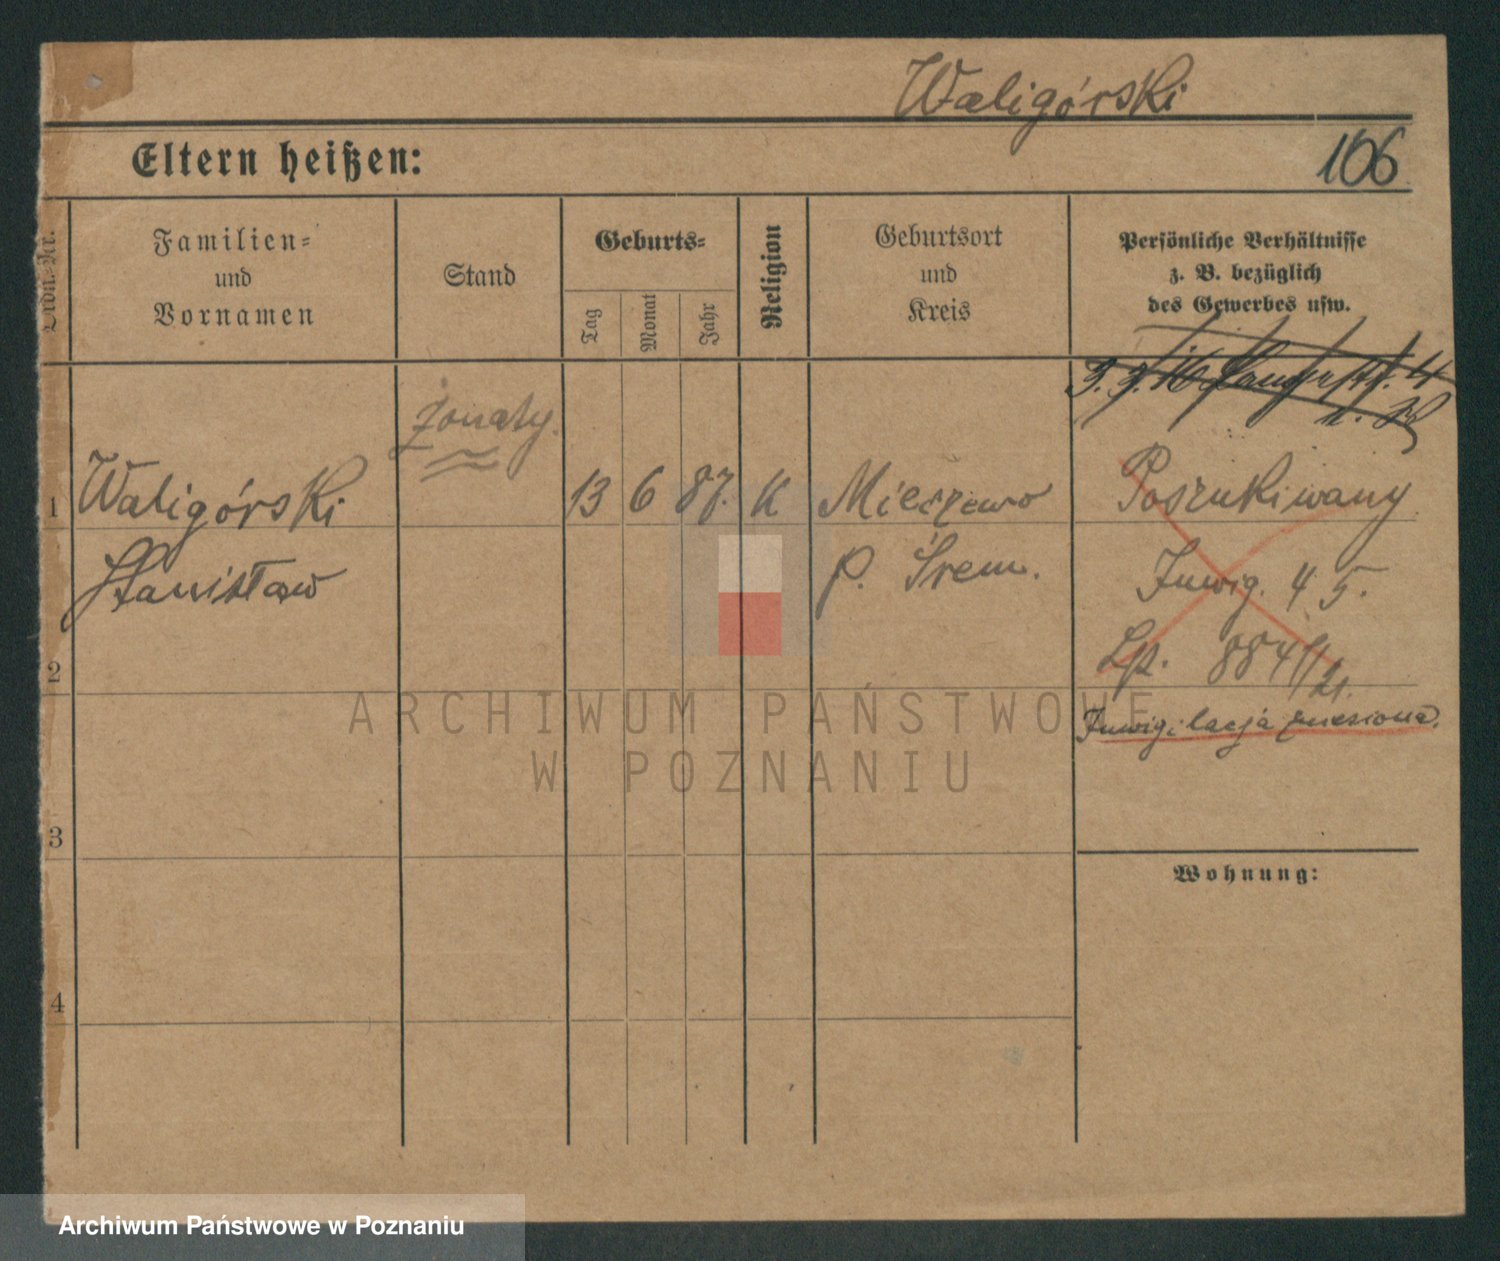 Waligórski
Eltern heißen:
106
Ordn.-Nr.
Familien-
und
Vornamen
Stand
Geburts-
Tag
Monat
Jahr
Religion
Geburtsort
und
Kreis
Persönliche Verhältnisse
z. B. bezüglich
des Gewerbes usw.
żonaty.
1 Waligórski 13 6 87. K Mieczewo Poszukiwany
Stanisław p. Śrem. Inwig. 45.
2 Lp. 884/21.
Inwigilacja zniesiona.
3
Wohnung:
4
ARCHIWUM PAŃSTWOWE
W POZNANIU
Archiwum Państwowe w Poznaniu